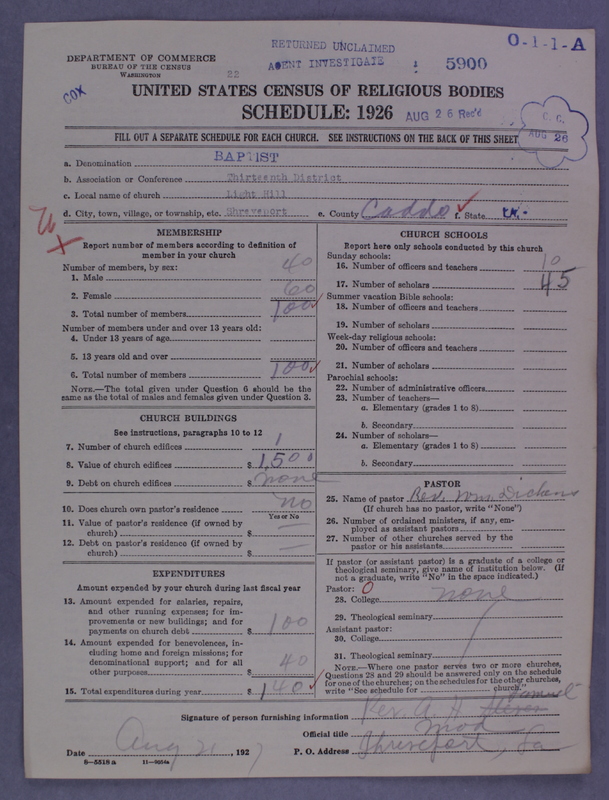 O-1-1-A
RETURNED UNCLAIMED
AGENT INVESTIGATE
5900
DEPARTMENT OF COMMERCE
BUREAU OF THE CENSUS
WASHINGTON
22
COX
UNITED STATES CENSUS OF RELIGIOUS BODIES
SCHEDULE: 1926
AUG 26 Rec'd
C. C.
AUG 26
FILL OUT A SEPARATE SCHEDULE FOR EACH CHURCH. SEE INSTRUCTIONS ON THE BACK OF THIS SHEET
a. Denomination BAPTIST
b. Association or Conference Thirteenth District
c. Local name of church Light Hill
d. City, town, village, or township, etc. Shreveport e. County Caddo f. State La.
MEMBERSHIP
Report number of members according to definition of
member in your church
Number of members, by sex:
1. Male 40
2. Female 60
3. Total number of members 100
Number of members under and over 13 years old:
4. Under 13 years of age
5. 13 years old and over
6. Total number of members 100
NOTE.—The total given under Question 6 should be the
same as the total of males and females given under Question 3.
CHURCH BUILDINGS
See instructions, paragraphs 10 to 12
7. Number of church edifices 1
8. Value of church edifices $ 1,500
9. Debt on church edifices $ none
10. Does church own pastor's residence no
Yes or No
11. Value of pastor's residence (if owned by
church) $ —
12. Debt on pastor's residence (if owned by
church) $ —
EXPENDITURES
Amount expended by your church during last fiscal year
13. Amount expended for salaries, repairs,
and other running expenses; for im-
provements or new buildings; and for
payments on church debt $ 100
14. Amount expended for benevolences, in-
cluding home and foreign missions; for
denominational support; and for all
other purposes $ 40
15. Total expenditures during year $ 140
CHURCH SCHOOLS
Report here only schools conducted by this church
Sunday schools:
16. Number of officers and teachers 10
17. Number of scholars 45
Summer vacation Bible schools:
18. Number of officers and teachers
19. Number of scholars
Week-day religious schools:
20. Number of officers and teachers
21. Number of scholars
Parochial schools:
22. Number of administrative officers
23. Number of teachers—
a. Elementary (grades 1 to 8)
b. Secondary
24. Number of scholars—
a. Elementary (grades 1 to 8)
b. Secondary
PASTOR
25. Name of pastor Rev. Wm. Dickens
(If church has no pastor, write "None")
26. Number of ordained ministers, if any, em-
ployed as assistant pastors
27. Number of other churches served by the
pastor or his assistants
If pastor (or assistant pastor) is a graduate of a college or
theological seminary, give name of institution below. (If
not a graduate, write "No" in the space indicated.)
Pastor: 0
28. College none
29. Theological seminary
Assistant pastor:
30. College
31. Theological seminary
NOTE.—Where one pastor serves two or more churches,
Questions 28 and 29 should be answered only on the schedule
for one of the churches; on the schedules for the other churches,
write "See schedule for church."
Samuel
Signature of person furnishing information Rev. A. H.
Official title Mod
Date Aug 21, 1927 P. O. Address Shreveport, La
8-5518 a